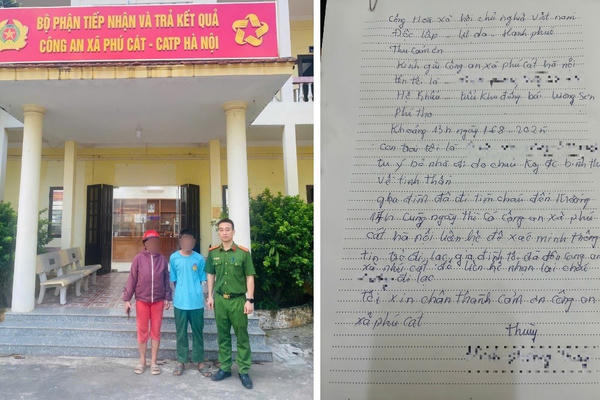 BỘ PHẬN TIẾP NHẬN VÀ TRẢ KẾT QUẢ
CÔNG AN XÃ PHÚ CÁT - CATP HÀ NỘI
Cộng Hoà xã hội chủ nghĩa Việt nam
Độc lập - tự do - Hạnh phúc
Thư cảm ơn
Kính gửi công an xã phú cát hà nội
tên tôi là
Hộ Khẩu tiểu khu đồng bái lương Sơn
Phú thọ
Khoảng 13h ngày 168 2025
con trai tôi là
tự ý bỏ nhà đi do cháu Kg đc bình th
về tinh thần
gia đình đã đi tìm cháu đến Khoảng
17h cùng ngày thì có công an xã phú
cát hà nội liên hệ để xác minh thông
tin trẻ đi lạc, gia đình tôi đã đến công an
xã phú cát để liên hệ nhận lại cháu
đi lạc
tôi xin chân thành cảm ơn công an
xã phú cát
thuỷ